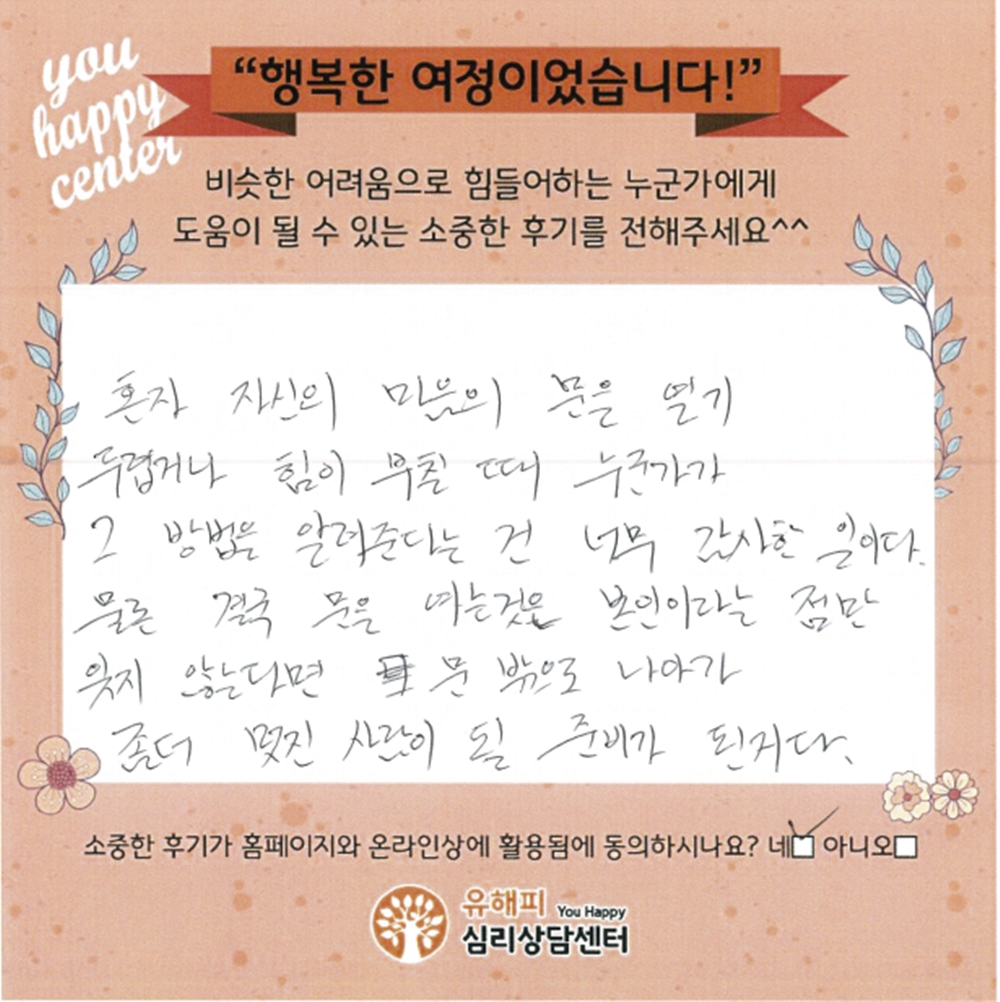 you
happy
center
“행복한 여정이었습니다!”
비슷한 어려움으로 힘들어하는 누군가에게
도움이 될 수 있는 소중한 후기를 전해주세요^^
혼자 자신의 마음의 문을 열기
두렵거나 힘이 부칠 때 누군가가
그 방법을 알려준다는 건 너무 감사한 일이다.
물론 결국 문을 여는것은 본인이라는 점만
잊지 않는다면 문 밖으로 나아가
좀더 멋진 사람이 될 준비가 된거다.
소중한 후기가 홈페이지와 온라인상에 활용됨에 동의하시나요? 네 아니오
유해피 You Happy
심리상담센터